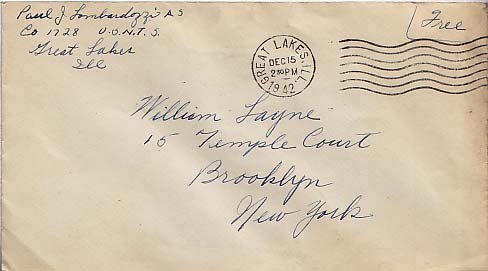 Paul J. Lombardozzi A S
Co 1728 U.S.N.T.S.
Great Lakes
Ill
Free
GREAT LAKES, ILL.
DEC 15
2 30 PM
1942
William Layne
15 Temple Court
Brooklyn
New York